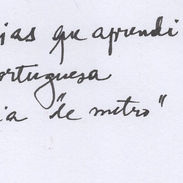 ias que aprendi
ortuguesa
ia "de metro"